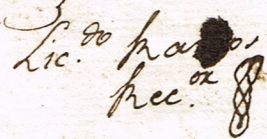 Lic.do Ramos
Rec.or